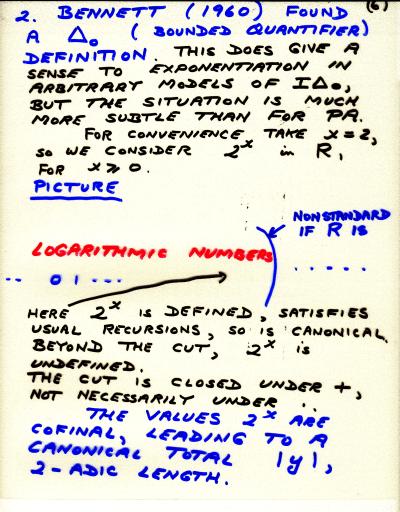 (6)
2. BENNETT (1960) FOUND
A Δ₀ (BOUNDED QUANTIFIER)
DEFINITION. THIS DOES GIVE A
SENSE TO EXPONENTIATION IN
ARBITRARY MODELS OF IΔ₀,
BUT THE SITUATION IS MUCH
MORE SUBTLE THAN FOR PA.
FOR CONVENIENCE, TAKE x=2,
SO WE CONSIDER 2ˣ in R,
FOR x ⩾ 0.
PICTURE
NONSTANDARD
IF R IS
LOGARITHMIC NUMBERS
.. 0 1 ... .....
HERE 2ˣ IS DEFINED, SATISFIES
USUAL RECURSIONS, SO IS CANONICAL.
BEYOND THE CUT, 2ˣ IS
UNDEFINED.
THE CUT IS CLOSED UNDER +,
NOT NECESSARILY UNDER ..
THE VALUES 2ˣ ARE
COFINAL, LEADING TO A
CANONICAL TOTAL |y|,
2-ADIC LENGTH.